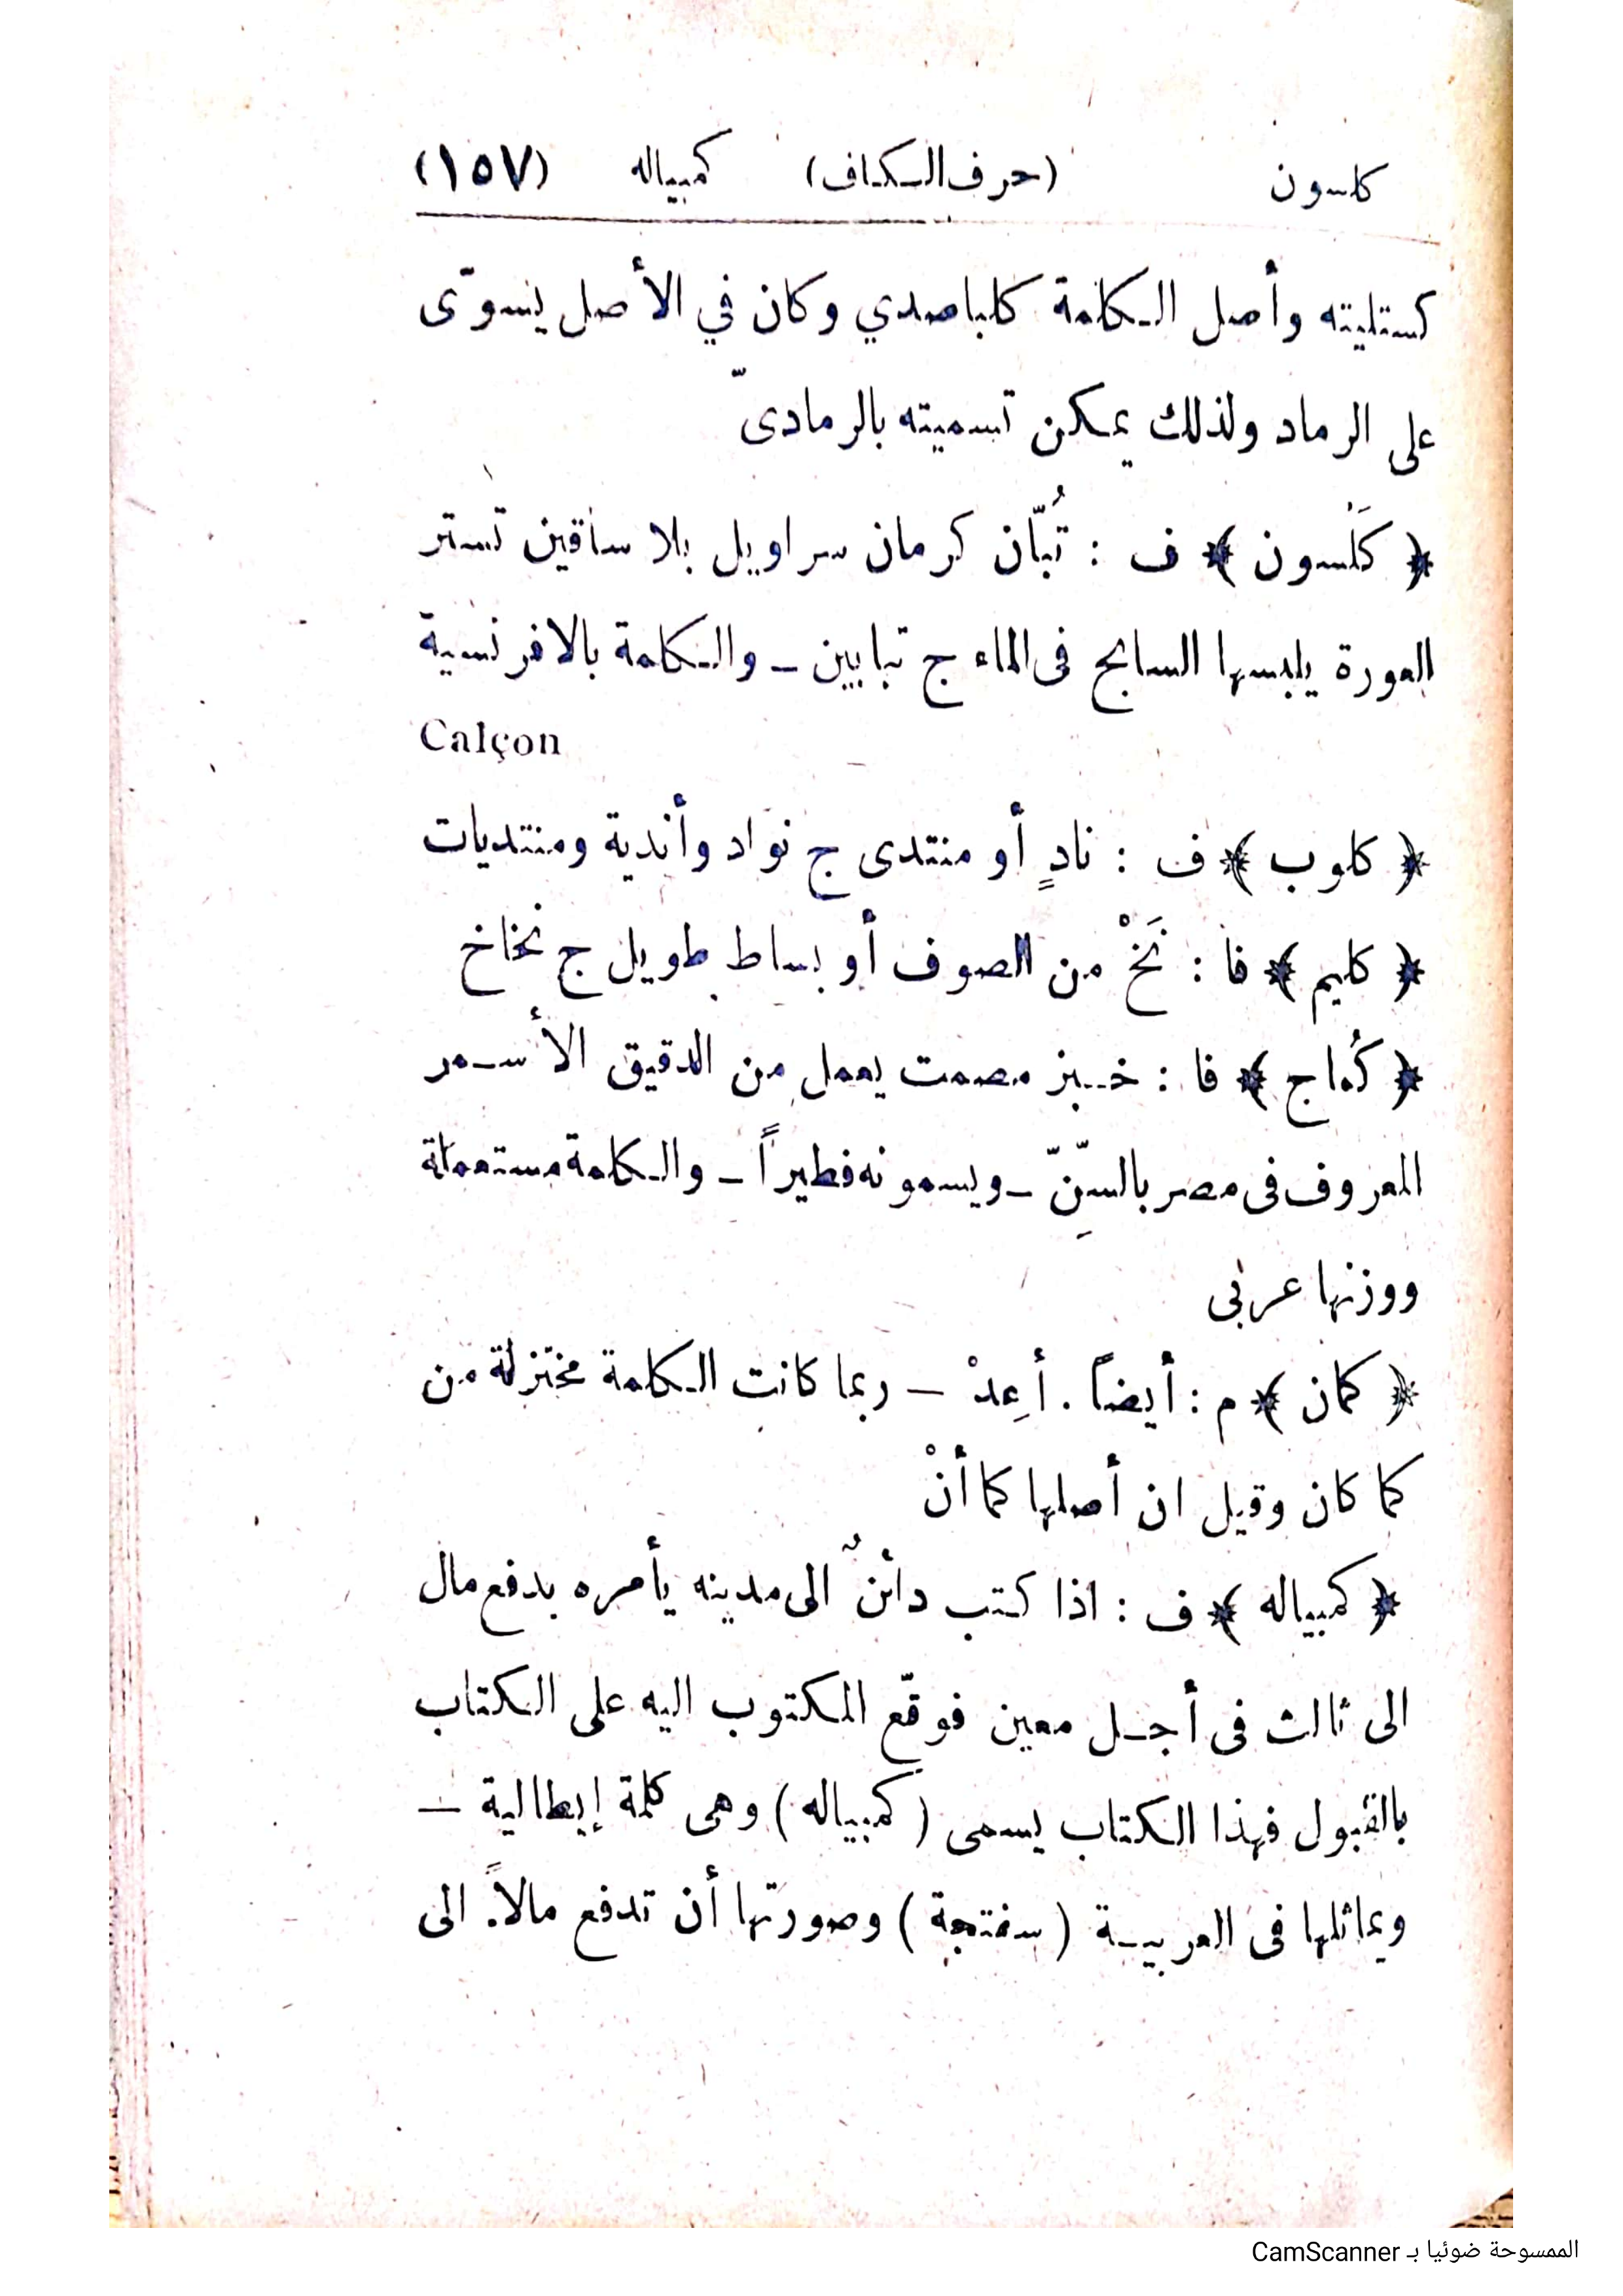 كلسون (حرف الكاف) كمبياله (١٥٧)
كستليته وأصل الكلمة كلباصدي وكان في الأصل يسوّى
على الرماد ولذلك يمكن تسميته بالرمادىّ
﴿ كَلْسون ﴾ ف : تُبّان كرمان سراويل بلا ساقين تستر
العورة يلبسها السابح فى الماء ج تبابين ـ والكلمة بالافرنسية
Calçon
﴿ كلوب ﴾ ف : نادٍ أو منتدى ج نواد وأندية ومنتديات
﴿ كليم ﴾ فا : نَخْ من الصوف أو بساط طويل ج نخاخ
﴿ كُماج ﴾ فا : خبز مصمت يعمل من الدقيق الأسمر
المعروف فى مصر بالسِنّ ـ ويسمونه فطيراً ـ والكلمة مستعملة
ووزنها عربى
﴿ كمان ﴾ م : أيضاً . أعِدْ ـ ربما كانت الكلمة مختزلة من
كما كان وقيل ان أصلها كما أنْ
﴿ كمبياله ﴾ ف : اذا كتب دائنٌ الى مدينه يأمره بدفع مال
الى ثالث فى أجل معين فوقّع المكتوب اليه على الكتاب
بالقبول فهذا الكتاب يسمى ( كمبياله ) وهى كلمة إيطالية ـ
ويماثلها فى العربية ( سفتجة ) وصورتها أن تدفع مالاً الى
الممسوحة ضوئيا بـ CamScanner